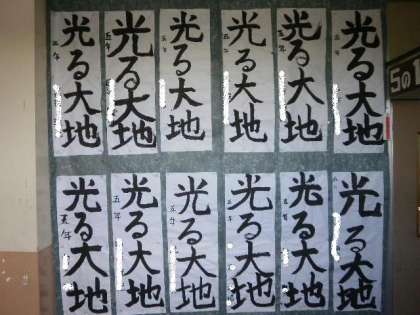 光る大地
五年
光る大地
五年
光る大地
五年
光る大地
五年
光る大地
五年
光る大地
五年
光る大地
五年
光る大地
五年
光る大地
五年
光る大地
五年
光る大地
五年
光る大地
五年
5の1